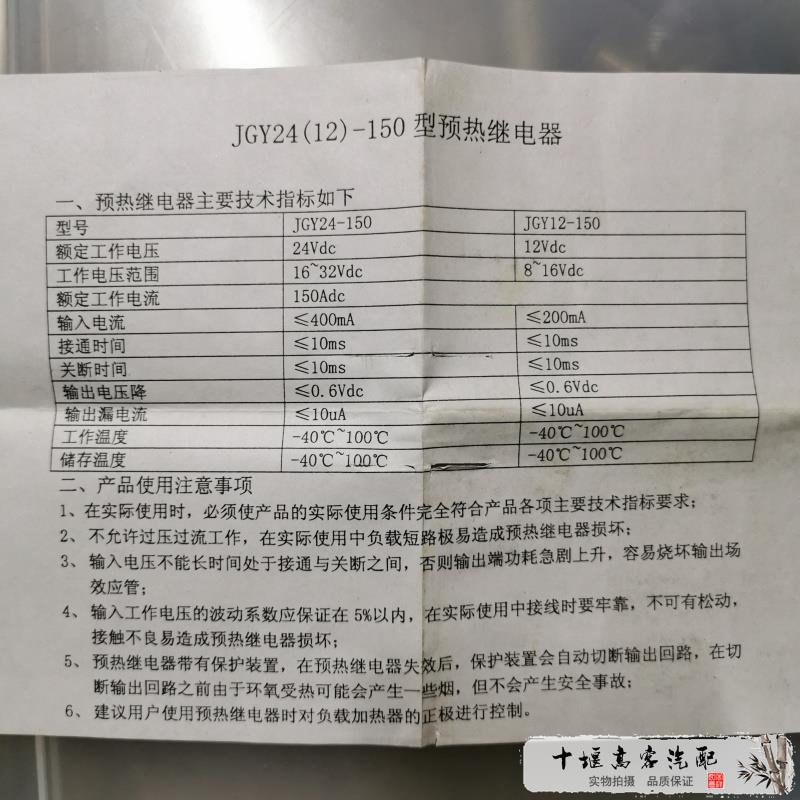 JGY24(12)-150 型预热继电器
一、预热继电器主要技术指标如下
型号 JGY24-150 JGY12-150
额定工作电压 24Vdc 12Vdc
工作电压范围 16~32Vdc 8~16Vdc
额定工作电流 150Adc
输入电流 ≤400mA ≤200mA
接通时间 ≤10ms ≤10ms
关断时间 ≤10ms ≤10ms
输出电压降 ≤0.6Vdc ≤0.6Vdc
输出漏电流 ≤10uA ≤10uA
工作温度 -40℃~100℃ -40℃~100℃
储存温度 -40℃~100℃ -40℃~100℃
二、产品使用注意事项
1、在实际使用时，必须使产品的实际使用条件完全符合产品各项主要技术指标要求；
2、不允许过压过流工作，在实际使用中负载短路极易造成预热继电器损坏；
3、输入电压不能长时间处于接通与关断之间，否则输出端功耗急剧上升，容易烧坏输出场
效应管；
4、输入工作电压的波动系数应保证在 5%以内，在实际使用中接线时要牢靠，不可有松动，
接触不良易造成预热继电器损坏；
5、预热继电器带有保护装置，在预热继电器失效后，保护装置会自动切断输出回路，在切
断输出回路之前由于环氧受热可能会产生一些烟，但不会产生安全事故；
6、建议用户使用预热继电器时对负载加热器的正极进行控制。
十堰高客汽配
实物拍摄 品质保证